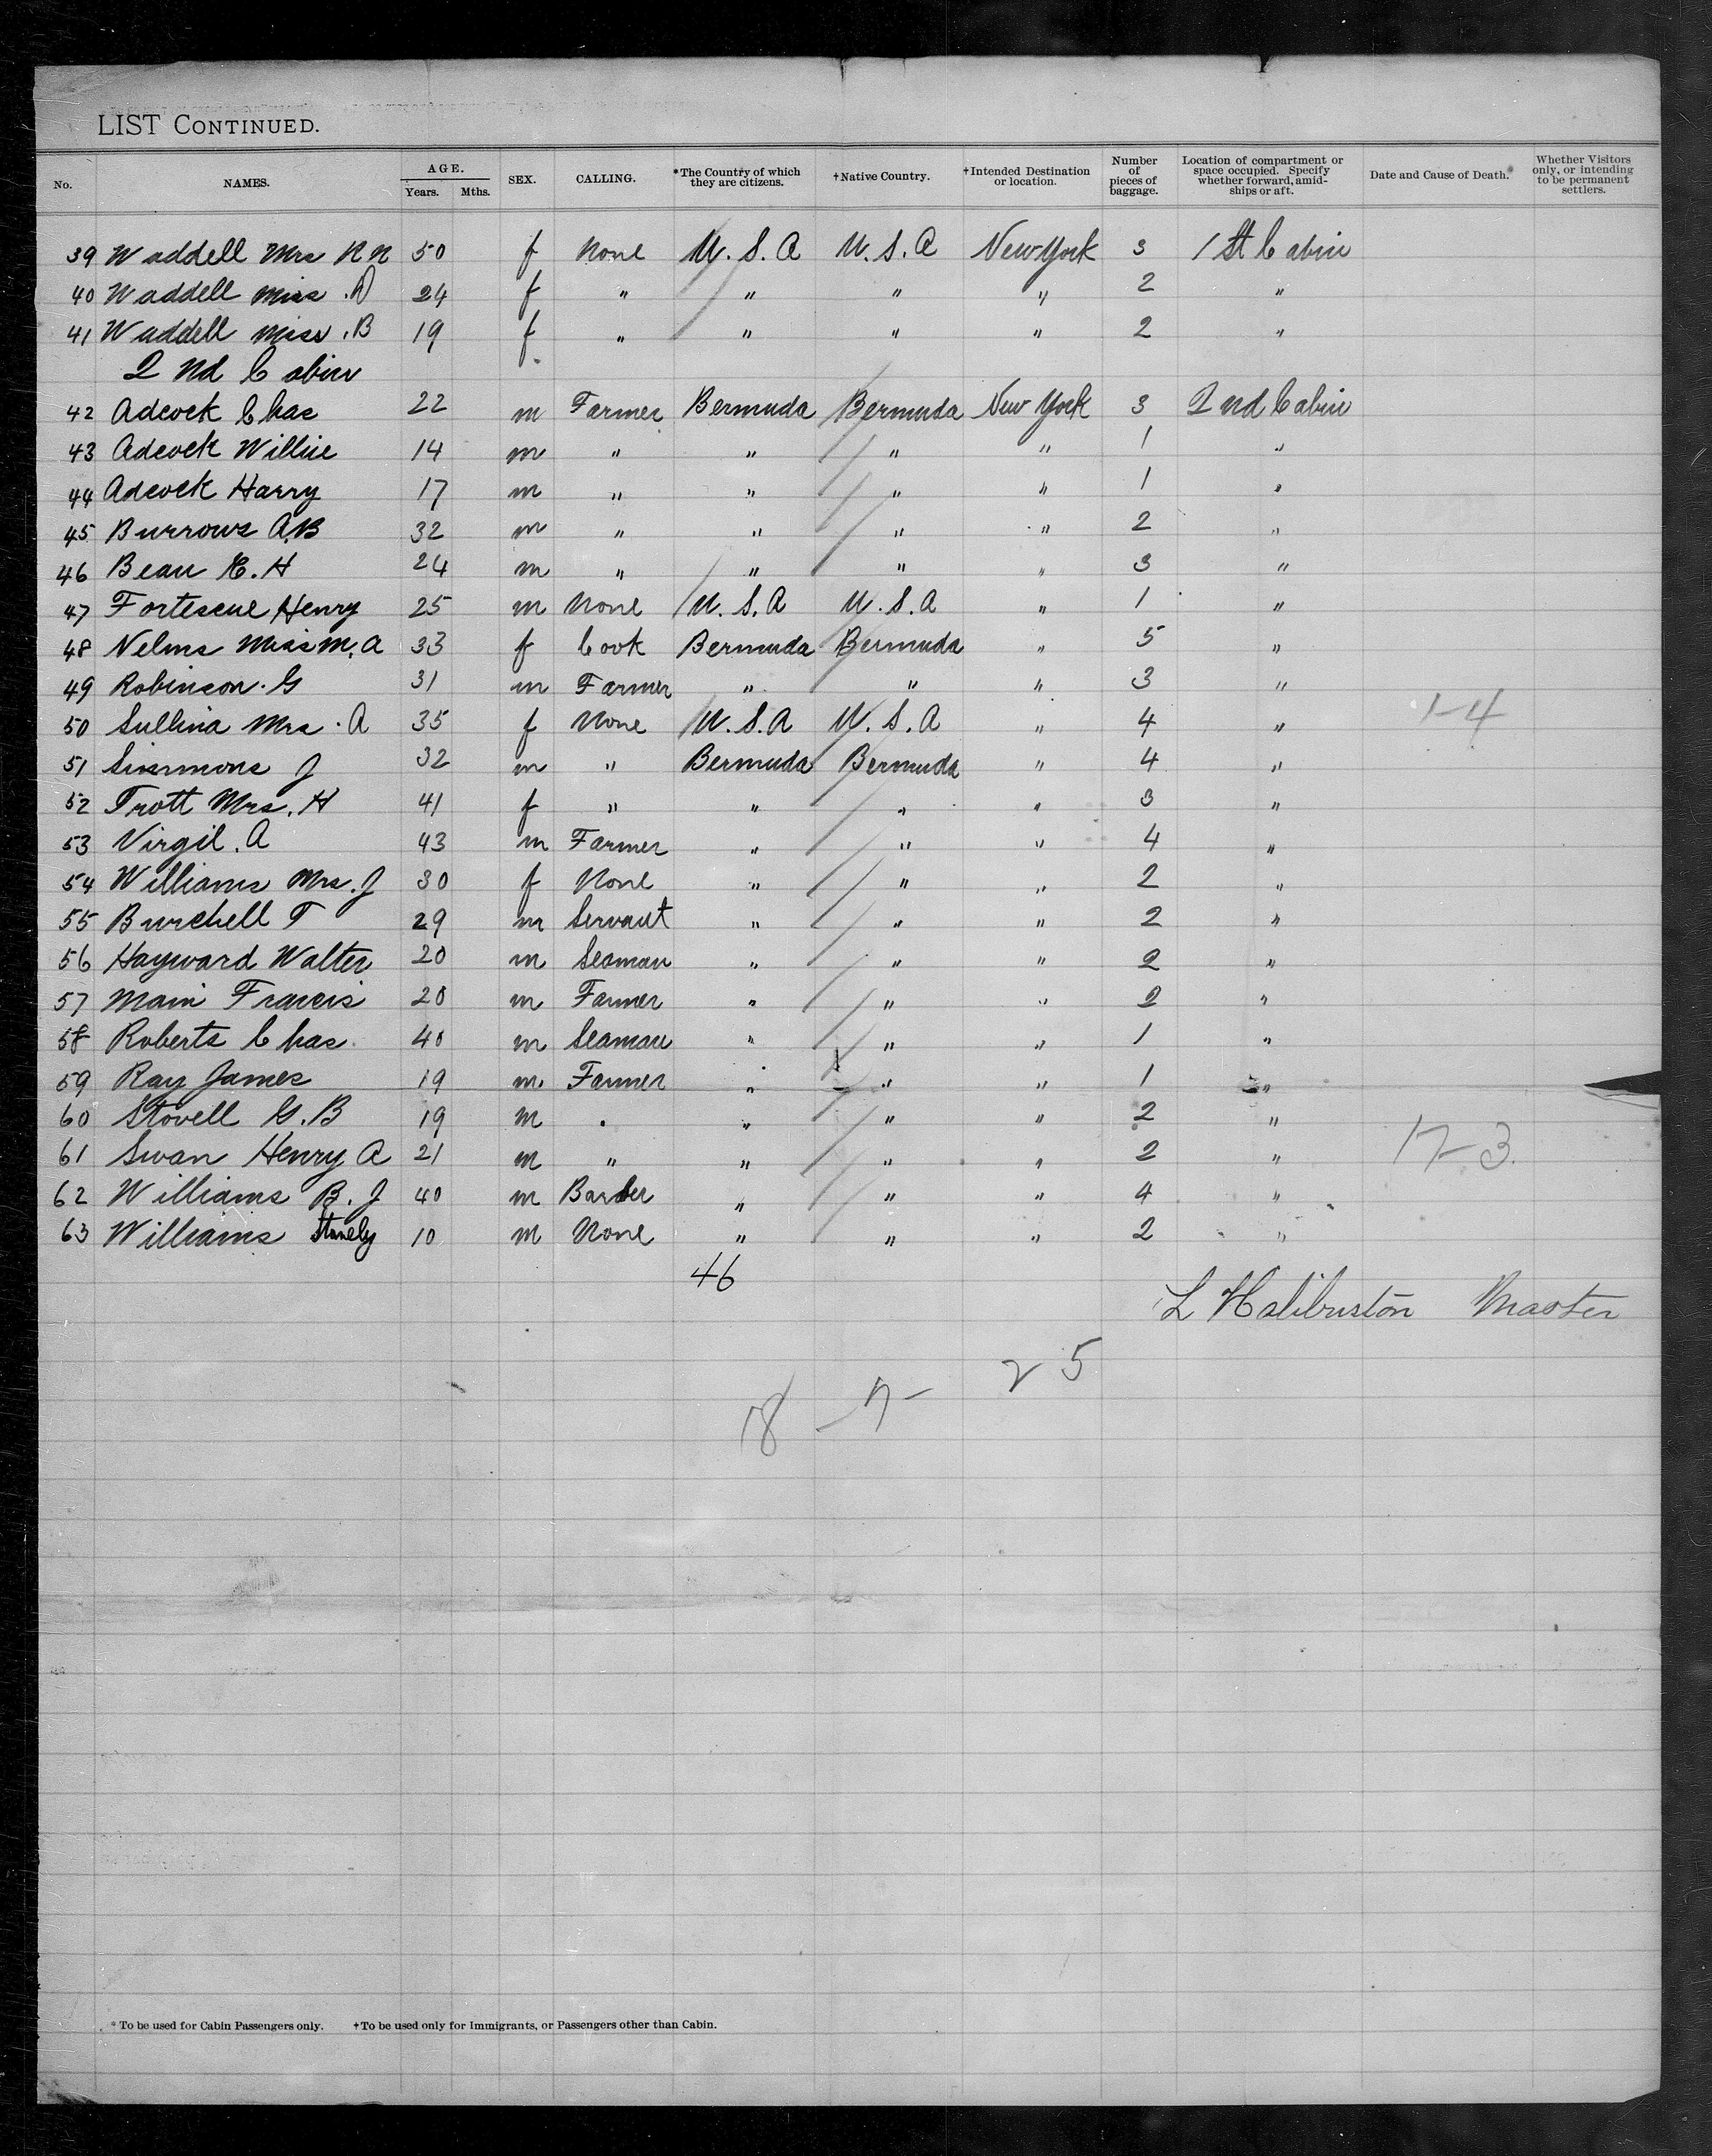 LIST CONTINUED.
No. NAMES. AGE. Years. Mths. SEX. CALLING. *The Country of which they are citizens. †Native Country. †Intended Destination or location. Number of pieces of baggage. Location of compartment or space occupied. Specify whether forward, amid-ships or aft. Date and Cause of Death. Whether Visitors only, or intending to be permanent settlers.
39 Waddell Mrs R N 50 f None U.S.A U.S.A New York 3 1 St Cabin
40 Waddell Miss . D 24 f " " " " 2 "
41 Waddell Miss . B 19 f " " " " 2 "
2 Nd Cabin
42 Adcock Chas 22 m Farmer Bermuda Bermuda New York 3 2 nd Cabin
43 Adcock Willie 14 m " " " " 1 "
44 Adcock Harry 17 m " " " " 1 "
45 Burrows A.B 32 m " " " " 2 "
46 Bean E. H 24 m " " " " 3 "
47 Fortescue Henry 25 m None U.S.A U.S.A " 1 "
48 Nelms Miss M. A 33 f Cook Bermuda Bermuda " 5 "
49 Robinson . G 31 m Farmer " " " 3 "
50 Sullina Mrs . A 35 f None U.S.A U.S.A " 4 " 1-4
51 Simmons J 32 m " Bermuda Bermuda " 4 "
52 Trott Mrs. H 41 f " " " " 3 "
53 Virgil . A 43 m Farmer " " " 4 "
54 Williams Mrs. J 30 f None " " " 2 "
55 Burchell T 29 m Servant " " " 2 "
56 Hayward Walter 20 m Seaman " " " 2 "
57 Main Francis 20 m Farmer " " " 2 "
58 Roberts Chas. 40 m Seaman " " " 1 "
59 Ray James 19 m. Farmer " " " 1 "
60 Stovell G. B 19 m " " " " 2 "
61 Swan Henry A 21 m " " " " 2 " 17-3.
62 Williams B. J 40 m Barber " " " 4 "
63 Williams Stanely 10 m None " " " 2 "
46
L Haliburston Master
18 - 7 - 25
* To be used for Cabin Passengers only. †To be used only for Immigrants, or Passengers other than Cabin.